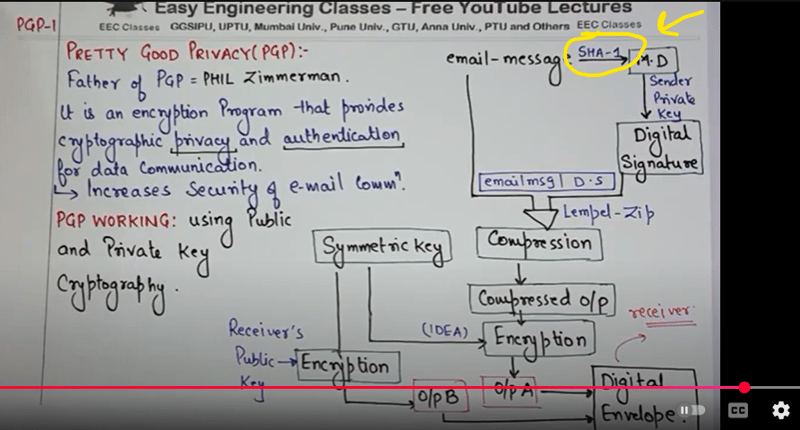 Easy Engineering Classes – Free YouTube Lectures
EEC Classes GGSIPU, UPTU, Mumbai Univ., Pune Univ., GTU, Anna Univ., PTU and Others EEC Classes
PGP-1
PRETTY GOOD PRIVACY(PGP):-
Father of PGP = PHIL Zimmerman.
It is an encryption Program that provides
cryptographic privacy and authentication
for data communication.
↳ Increases Security of e-mail Commⁿ.
PGP WORKING: using Public
and Private Key
Cryptography.
email-message
SHA-1
M.D
Sender
Private
Key
Digital
Signature
email msg | D.S
Lempel-Zip
Compression
Compressed o/p
Symmetric key
(IDEA)
Encryption
receiver
Receiver's
Public
Key
Encryption
O/p B
O/p A
Digital
Envelope.
CC